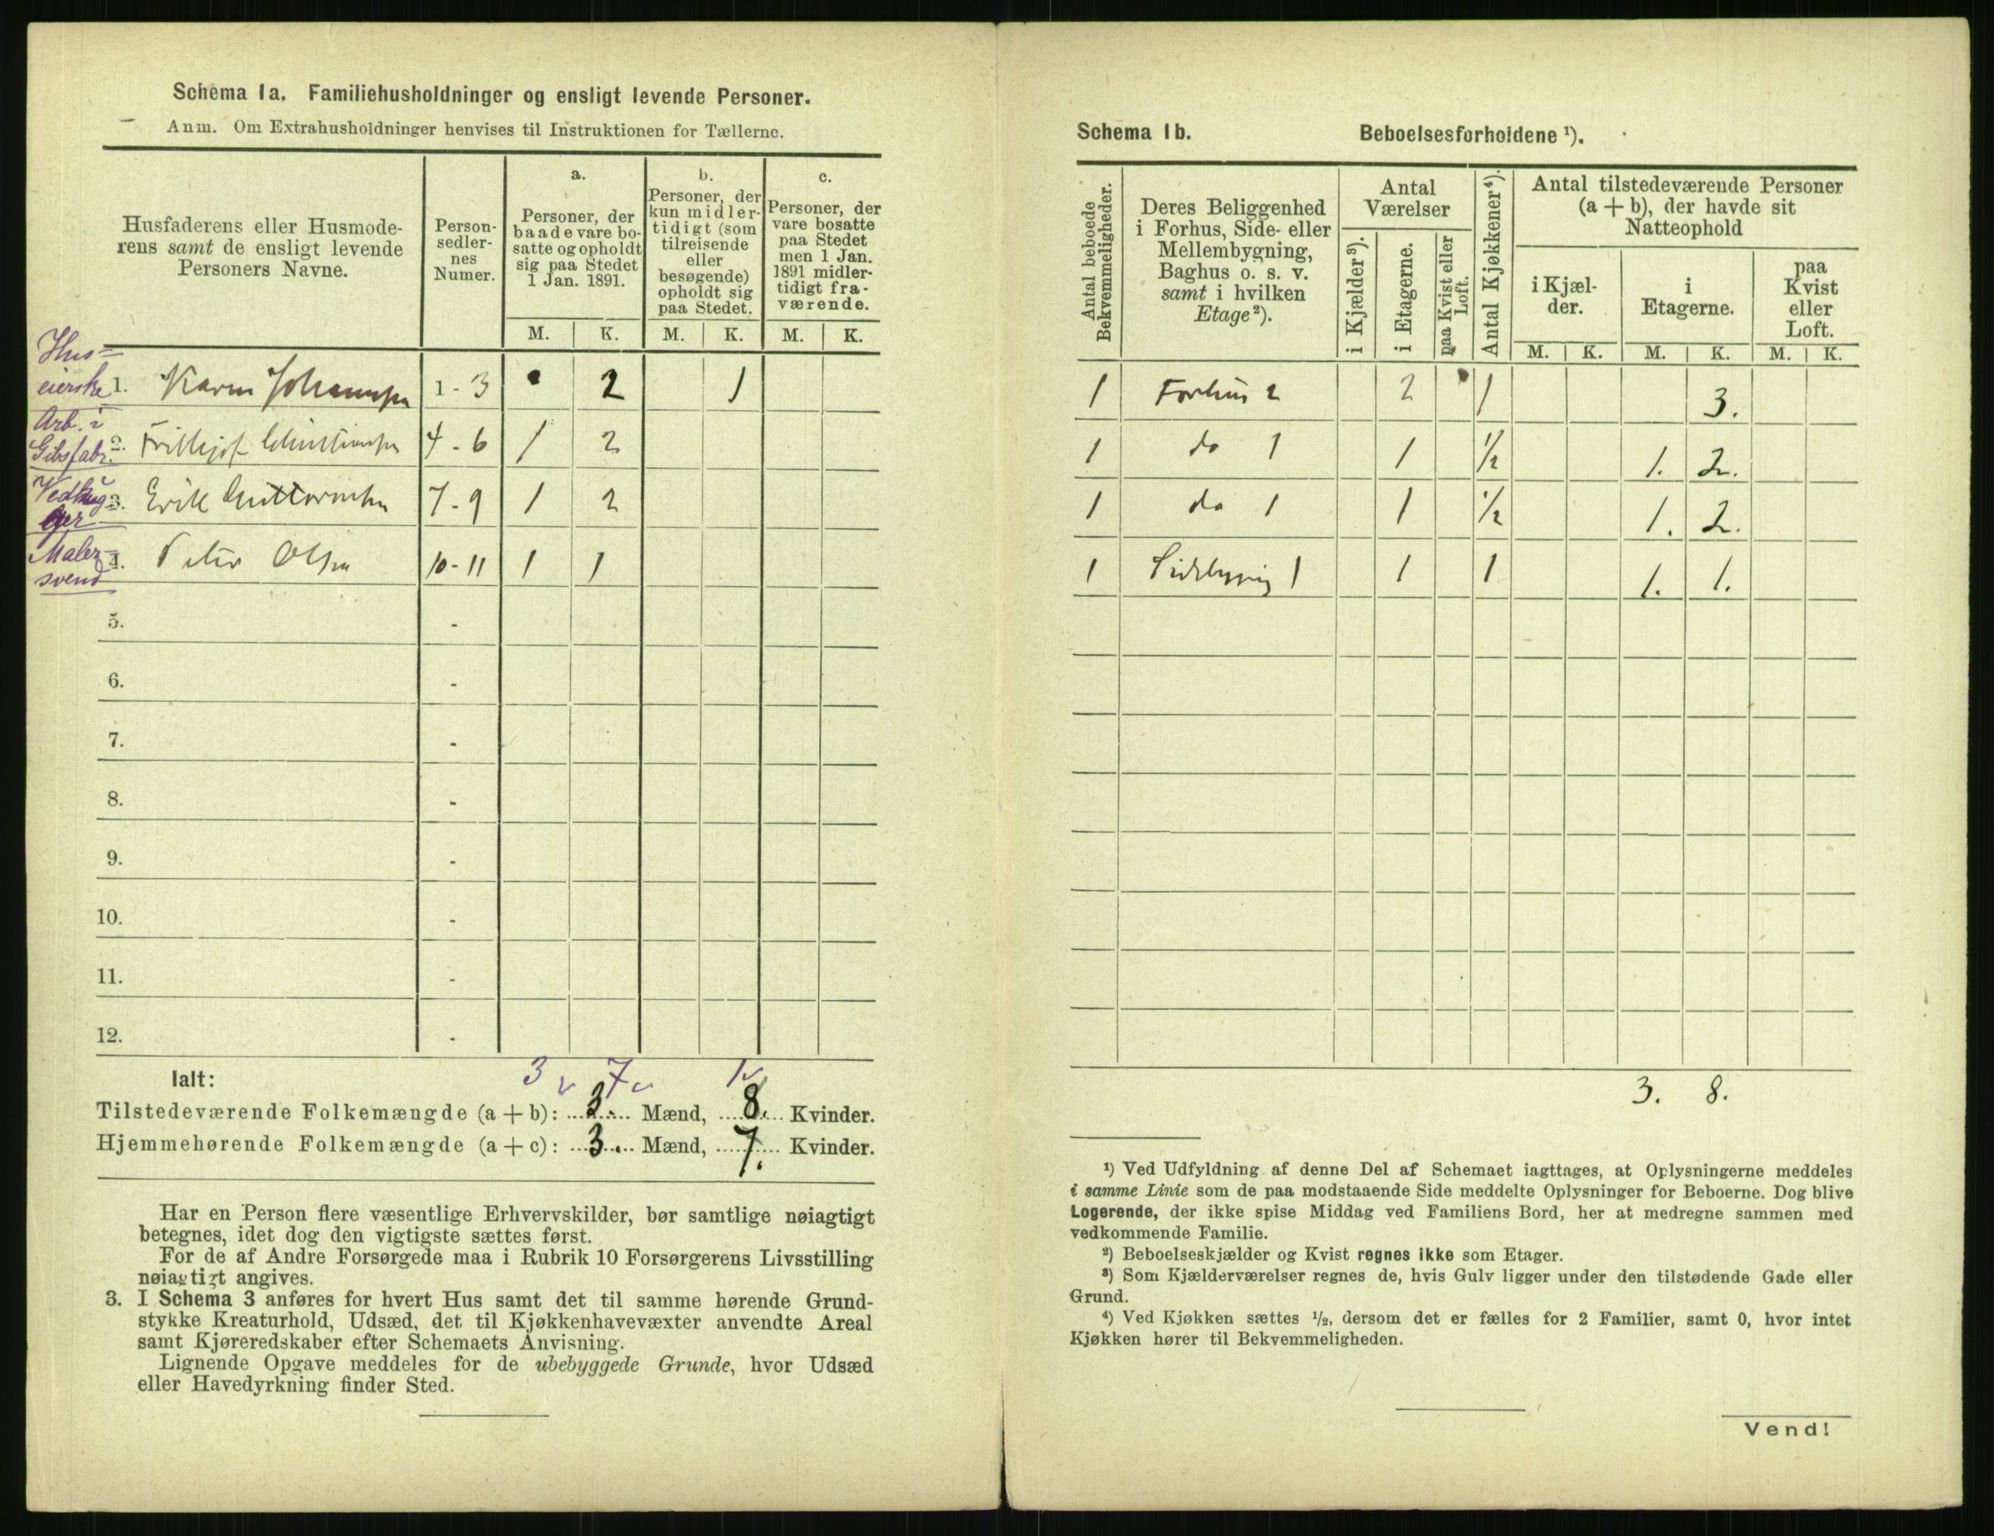 Schema 1a. Familiehusholdninger og ensligt levende Personer.
Anm. Om Extrahusholdninger henvises til Instruktionen for Tællerne.
Husfaderens eller Husmode-
rens samt de ensligt levende
Personers Navne.
Person-
sedler-
nes
Numer.
a.
Personer, der
baade vare bo-
satte og opholdt
sig paa Stedet
1 Jan. 1891.
b.
Personer, der
kun midler-
tidigt (som
tilreisende
eller
besøgende)
opholdt sig
paa Stedet.
c.
Personer, der
vare bosatte
paa Stedet
men 1 Jan.
1891 midler-
tidigt fra-
værende.
M. K. M. K. M. K.
Hus=
eierske 1. Karen Johannsen 1 - 3 2 1
Arb. i
Gibsfabr. 2. Frithjof Christiansen 4 - 6 1 2
Vedhug
ger 3. Erik Guttormsen 7 - 9 1 2
Maler=
svend 4. Peter Olsen 10 - 11 1 1
5. -
6. -
7. -
8. -
9. -
10. -
11. -
12. -
3 7 1
Ialt:
Tilstedeværende Folkemængde (a + b): 3. Mænd, 8. Kvinder.
Hjemmehørende Folkemængde (a + c): 3. Mænd, 7. Kvinder.
Har en Person flere væsentlige Erhvervskilder, bør samtlige nøiagtigt
betegnes, idet dog den vigtigste sættes først.
For de af Andre Forsørgede maa i Rubrik 10 Forsørgerens Livsstilling
nøiagtigt angives.
3. I Schema 3 anføres for hvert Hus samt det til samme hørende Grund-
stykke Kreaturhold, Udsæd, det til Kjøkkenhavevæxter anvendte Areal
samt Kjøreredskaber efter Schemaets Anvisning.
Lignende Opgave meddeles for de ubebyggede Grunde, hvor Udsæd
eller Havedyrkning finder Sted.
Schema 1b. Beboelsesforholdene ¹).
Antal beboede
Bekvemmeligheder.
Deres Beliggenhed
i Forhus, Side- eller
Mellembygning,
Baghus o. s. v.
samt i hvilken
Etage²).
Antal
Værelser
i Kjælder³).
i Etagerne.
paa Kvist eller
Loft.
Antal Kjøkkener⁴).
Antal tilstedeværende Personer
(a + b), der havde sit
Natteophold
i Kjæl-
der.
i
Etagerne.
paa
Kvist
eller
Loft.
M. K. M. K. M. K.
1 Forhus 2 2 1 3.
1 do 1 1 ½ 1. 2.
1 do 1 1 ½ 1. 2.
1 Sidebygnig 1 1 1 1. 1.
3. 8.
¹) Ved Udfyldning af denne Del af Schemaet iagttages, at Oplysningerne meddeles
i samme Linie som de paa modstaaende Side meddelte Oplysninger for Beboerne. Dog blive
Logerende, der ikke spise Middag ved Familiens Bord, her at medregne sammen med
vedkommende Familie.
²) Beboelseskjælder og Kvist regnes ikke som Etager.
³) Som Kjælderværelser regnes de, hvis Gulv ligger under den tilstødende Gade eller
Grund.
⁴) Ved Kjøkken sættes ½, dersom det er fælles for 2 Familier, samt 0, hvor intet
Kjøkken hører til Bekvemmeligheden.
Vend!